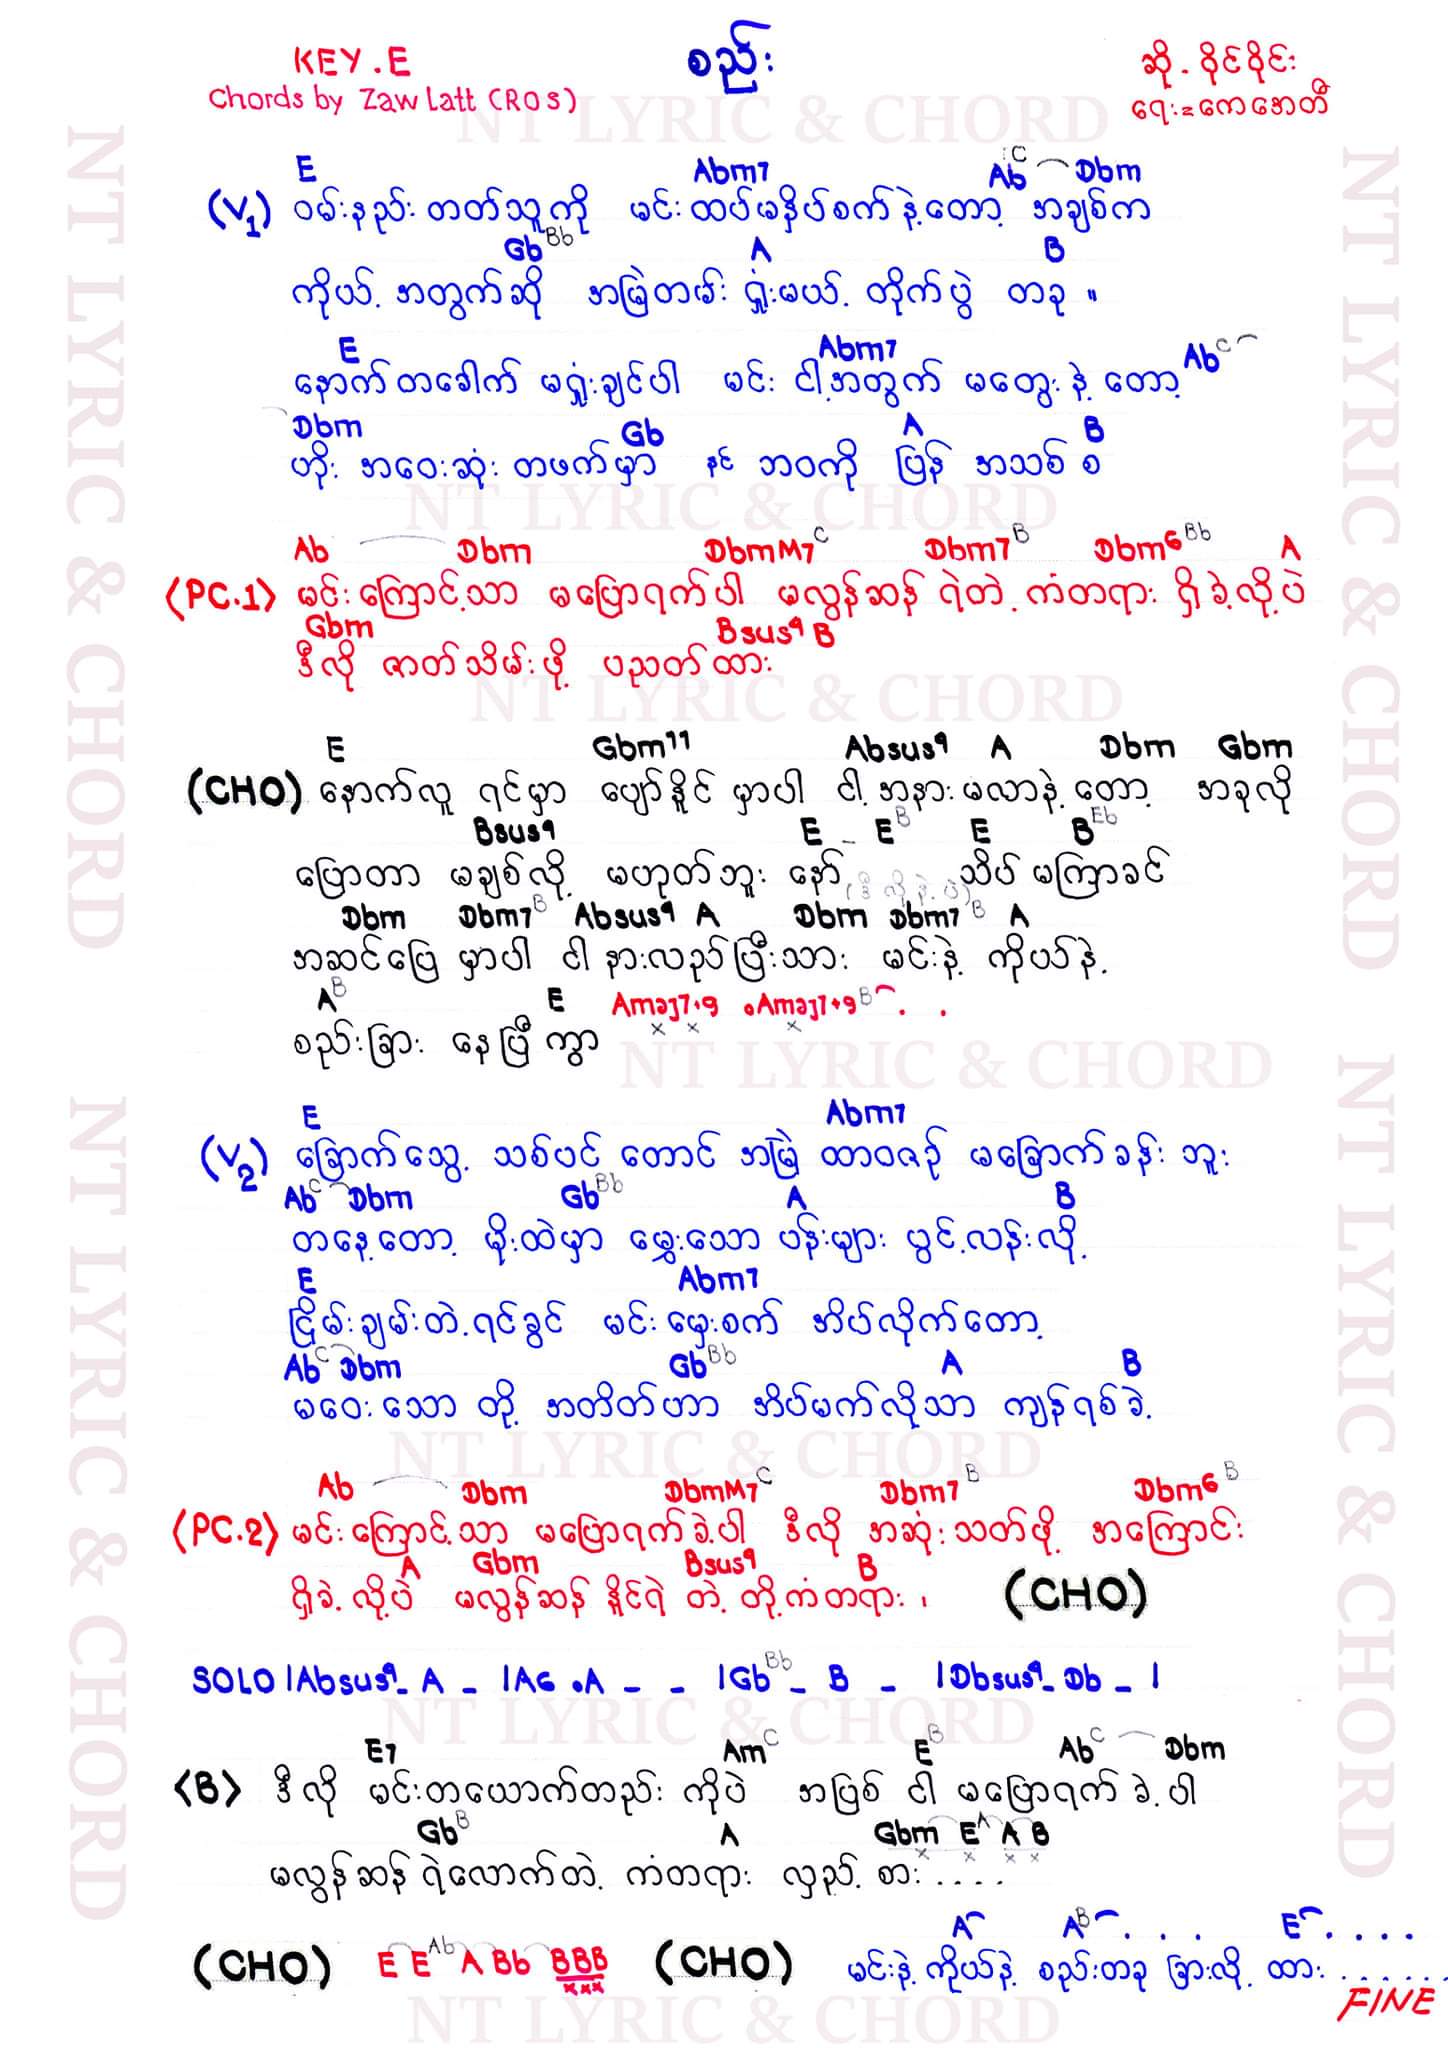 KEY.E
Chords by Zaw Latt (ROS)
စည်း
ဆို. ဝိုင်ဝိုင်း
ရေး=ကေအေတီ
NT LYRIC & CHORD
NT LYRIC & CHORD
NT LYRIC & CHORD
E Abm7 Ab C Dbm
(V1) ဝမ်းနည်းတတ်သူကို မင်းထပ်မနှိပ်စက်နဲ့တော့ အချစ်က
Gb Bb A B
ကိုယ့်အတွက်ဆို အမြဲတမ်း ရှုံးမယ့် တိုက်ပွဲ တခု ။
E Abm7 Ab C
နောက်တခေါက် မရှုံးချင်ပါ မင်း ငါ့အတွက် မတွေးနဲ့ တော့
Dbm Gb A B
ဟိုး အဝေးဆုံး တဖက်မှာ နင် ဘဝကို ပြန် အသစ် စ
NT LYRIC & CHORD
Ab Dbm DbmM7 C Dbm7 B Dbm6 Bb A
(PC.1) မင်းကြောင့်သာ မပြောရက်ပါ မလွန်ဆန်ရဲတဲ့ ကံတရား ရှိခဲ့လို့ပဲ
Gbm Bsus9 B
ဒီလို ဇာတ်သိမ်းဖို့ ပညတ်ထား
NT LYRIC & CHORD
E Gbm11 Absus9 A Dbm Gbm
(CHO) နောက်လူ ရင်မှာ ပျော်နိုင် မှာပါ ငါ့ အနားမလာနဲ့ တော့ အခုလို
Bsus9 E _ E B E B Eb
ပြောတာ မချစ်လို့ မဟုတ်ဘူး နော် (ဒီလိုနဲ့ပဲ) သိပ်မကြာခင်
Dbm Dbm7 B Absus9 A Dbm Dbm7 B A
အဆင်ပြေ မှာပါ ငါ နားလည်ပြီးသား မင်းနဲ့ ကိုယ်နဲ့
A B E Amaj7+9 .Amaj7+9 B . .
x x x
စည်းခြား နေပြီ ကွာ
NT LYRIC & CHORD
E Abm7
(V2) ခြောက်သွေ့ သစ်ပင် တောင် အမြဲ ထာဝစဉ် မခြောက်ခန်း ဘူး
Ab C Dbm Gb Bb A B
တနေ့တော့ မိုးထဲမှာ မွှေးသော ပန်းများ ပွင့်လန်းလို့
E Abm7
ငြိမ်းချမ်းတဲ့ရင်ခွင် မင်းမှေးစက် အိပ်လိုက်တော့
Ab C Dbm Gb Bb A B
မဝေးသော တို့ အတိတ်ဟာ အိပ်မက်လိုသာ ကျန်ရစ်ခဲ့
NT LYRIC & CHORD
NT LYRIC & CHORD
NT LYRIC & CHORD
Ab Dbm DbmM7 C Dbm7 B Dbm6 B
(PC.2) မင်းကြောင့်သာ မပြောရက်ခဲ့ပါ ဒီလို အဆုံးသတ်ဖို့ အကြောင်း
A Gbm Bsus9 B
ရှိခဲ့လို့ပဲ မလွန်ဆန်နိုင်ရဲ တဲ့ တို့ကံတရား ၊ (CHO)
SOLO |Absus9_ A _ |A6 .A _ _ |Gb Bb _ B _ |Dbsus9_ Db _ |
NT LYRIC & CHORD
E7 Am C E B Ab C Dbm
(B) ဒီလို မင်းတယောက်တည်း ကိုပဲ အပြစ် ငါ မပြောရက် ခဲ့ပါ
Gb B A Gbm E A A B
x x x x
မလွန်ဆန်ရဲလောက်တဲ့ ကံတရား လှည့် စား ....
A A B . . . . E . . . .
(CHO) E E Ab A Bb BBB (CHO) မင်းနဲ့ ကိုယ်နဲ့ စည်းတခု ခြားလို့ ထား ......
xxx
FINE
NT LYRIC & CHORD